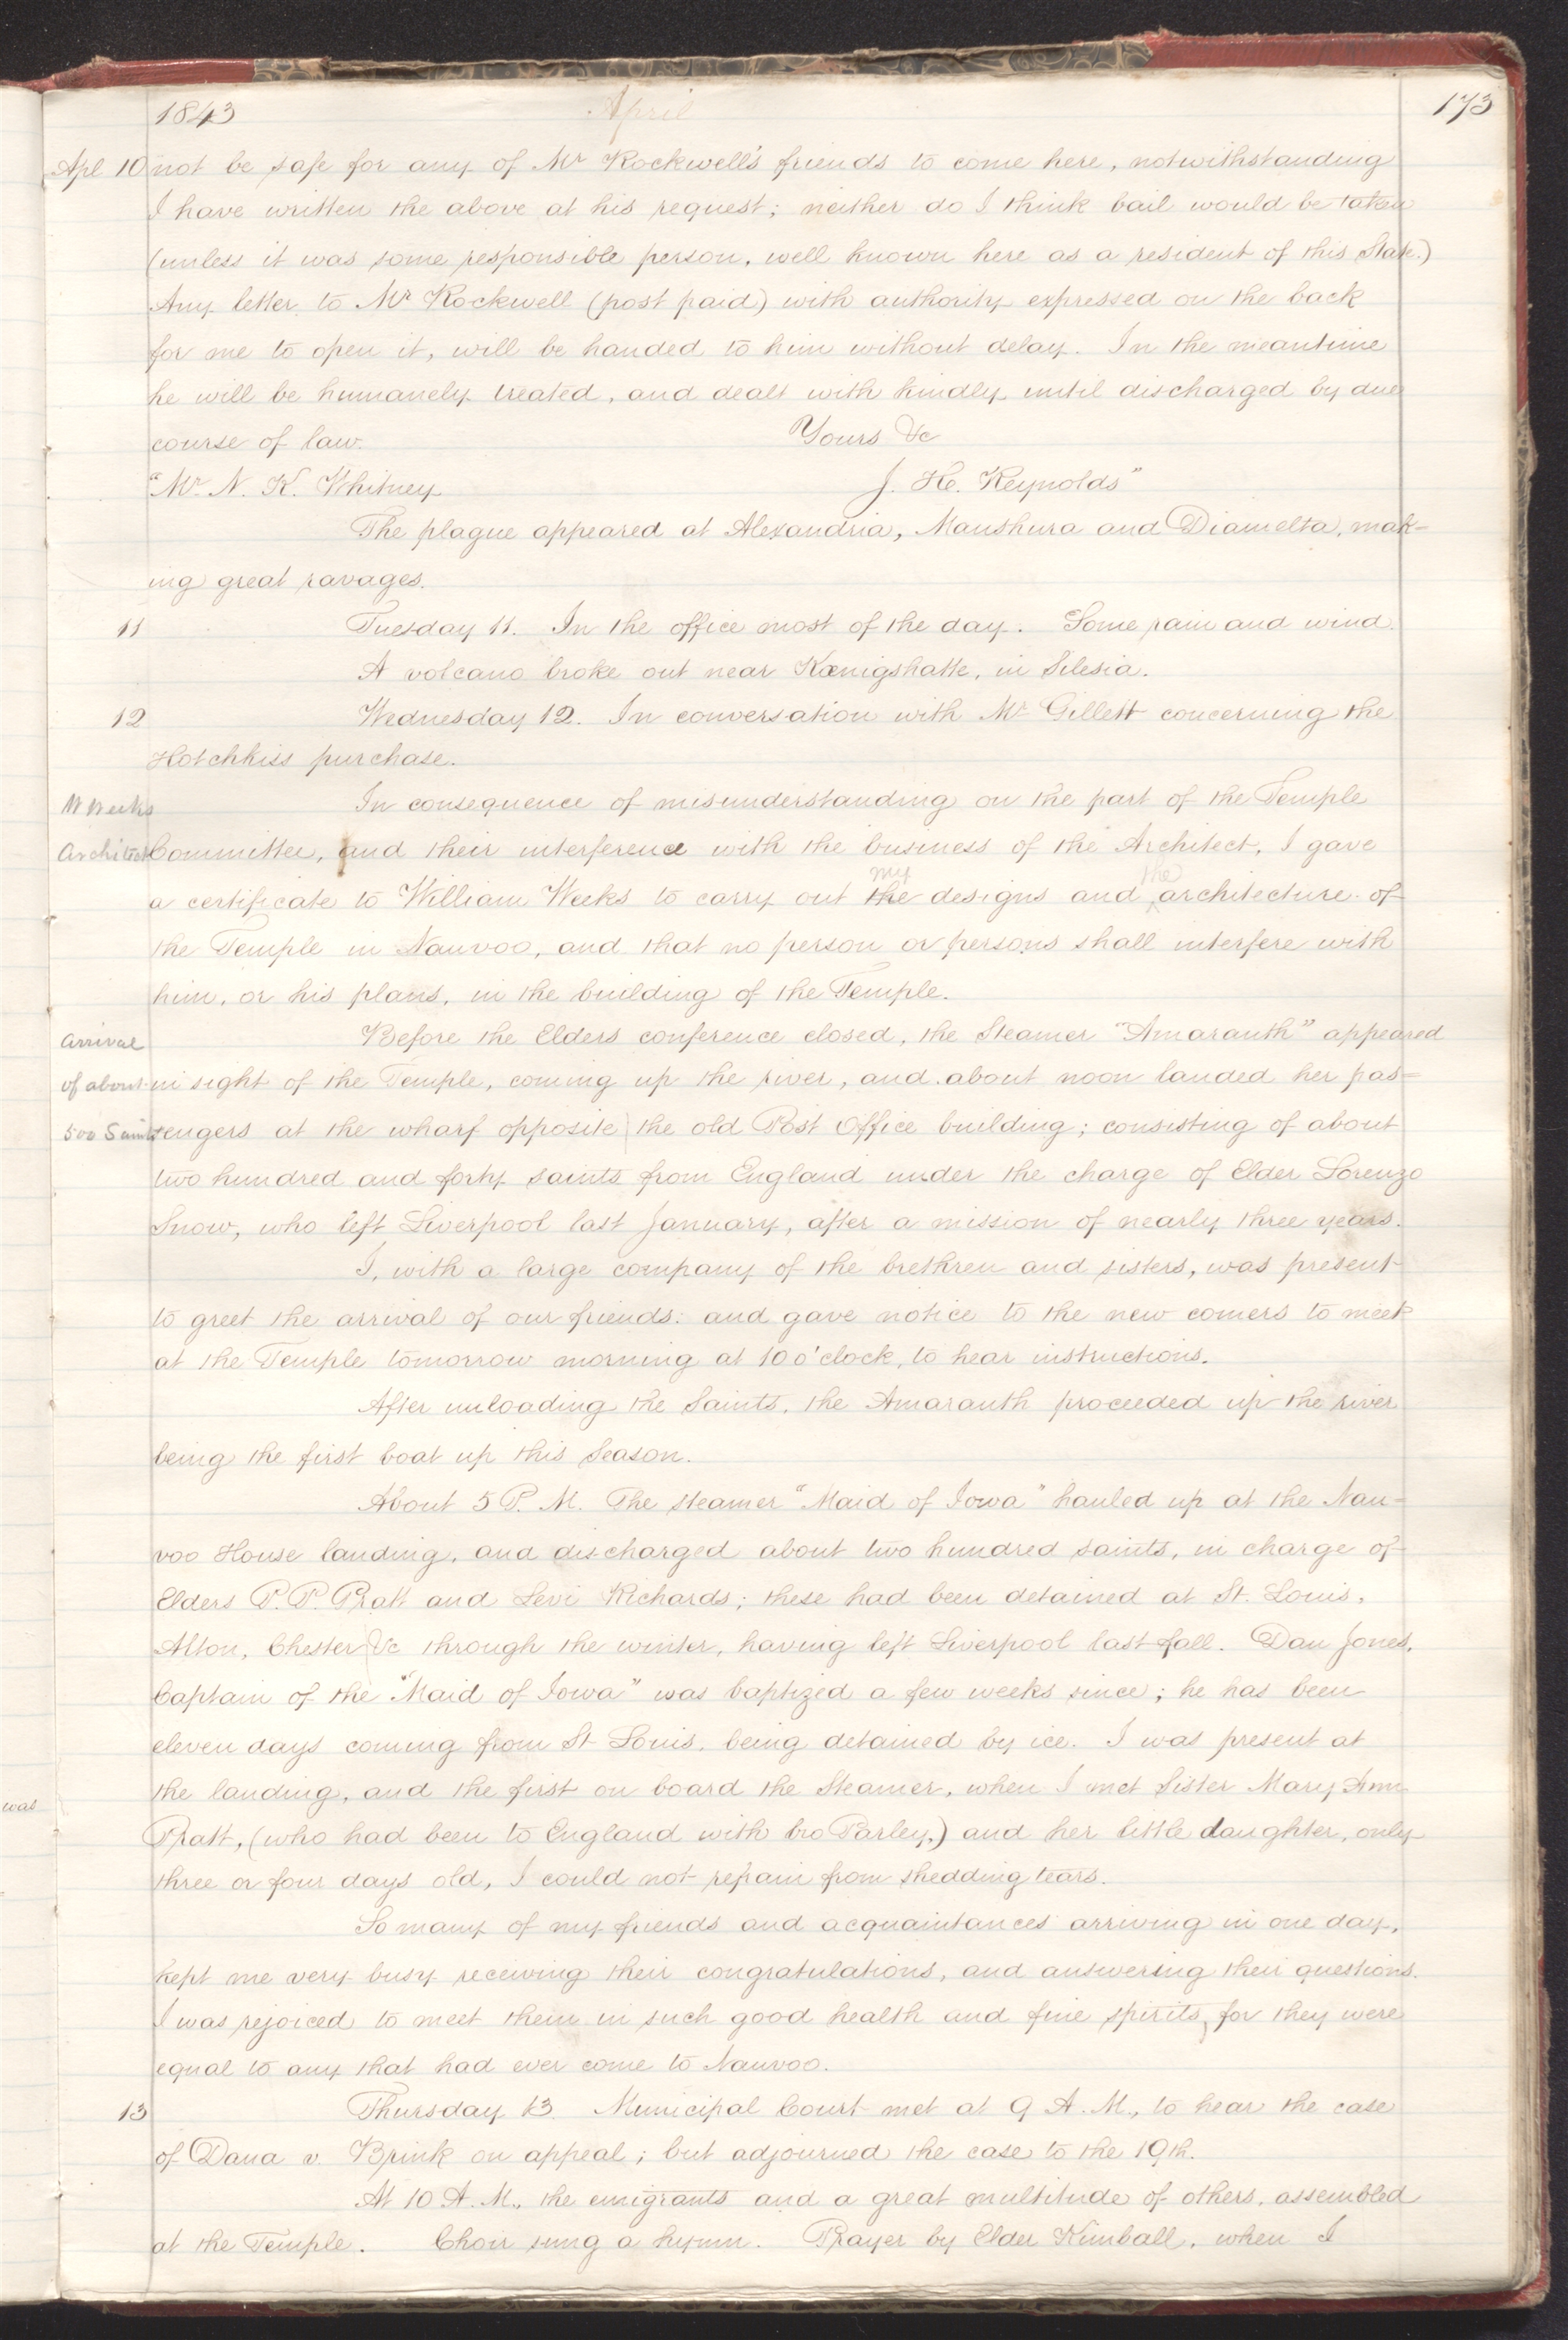 1843 April 173
Apl 10 not be safe for any of Mr Rockwell's friends to come here, notwithstanding
I have written the above at his request; neither do I think bail would be taken
(unless it was some responsible person, well known here as a resident of this State.)
Any letter to Mr Rockwell (post paid) with authority expressed on the back
for me to open it, will be handed to him without delay. In the meantime
he will be humanely treated, and dealt with kindly until discharged by due
course of law. Yours &c
"Mr. N. K. Whitney J. H. Reynolds"
The plague appeared at Alexandria, Manshura and Diamelta, mak=
ing great ravages.
11 Tuesday 11. In the office most of the day. Some rain and wind.
A volcano broke out near Kœnigshatte, in Silesia.
12 Wednesday 12. In conversation with Mr Gillett concerning the
Hotchkiss purchase.
W Weeks In consequence of misunderstanding on the part of the Temple
Architect Committee, and their interference with the business of the Architect, I gave
my the
a certificate to William Weeks to carry out the designs and ^ architecture of
the Temple in Nauvoo, and that no person or persons shall interfere with
him, or his plans, in the building of the Temple.
arrival Before the Elders conference closed, the Steamer "Amaranth" appeared
of about in sight of the Temple, coming up the river, and about noon landed her pas=
500 Saints sengers at the wharf opposite the old Post Office building; consisting of about
two hundred and forty saints from England under the charge of Elder Lorenzo
Snow, who left Liverpool last January, after a mission of nearly three years.
I, with a large company of the brethren and sisters, was present
to greet the arrival of our friends: and gave notice to the new comers to meet
at the Temple tomorrow morning at 10 o'clock, to hear instructions.
After unloading the Saints, the Amaranth proceeded up the river
being the first boat up this Season.
About 5 P. M. The steamer "Maid of Iowa" hauled up at the Nau=
voo House landing, and discharged about two hundred saints, in charge of
Elders P. P. Pratt and Levi Richards; these had been detained at St. Louis,
Alton, Chester &c through the winter, having left Liverpool last fall. Dan Jones,
Captain of the "Maid of Iowa" was baptized a few weeks since; he has been
eleven days coming from St Louis, being detained by ice. I was present at
the landing, and the first on board the Steamer, when I met Sister Mary Ann
was
Pratt, (who had been to England with bro Parley,) and her little daughter, only
three or four days old, I could not refrain from shedding tears.
So many of my friends and acquaintances arriving in one day,
kept me very busy receiving their congratulations, and answering their questions.
I was rejoiced to meet them in such good health and fine spirits, for they were
equal to any that had ever come to Nauvoo.
13 Thursday 13 Municipal Court met at 9 A. M., to hear the case
of Dana v. Brink on appeal; but adjourned the case to the 19th.
At 10 A. M., the emigrants and a great multitude of others, assembled
at the Temple. Choir sung a hymn. Prayer by Elder Kimball, when I